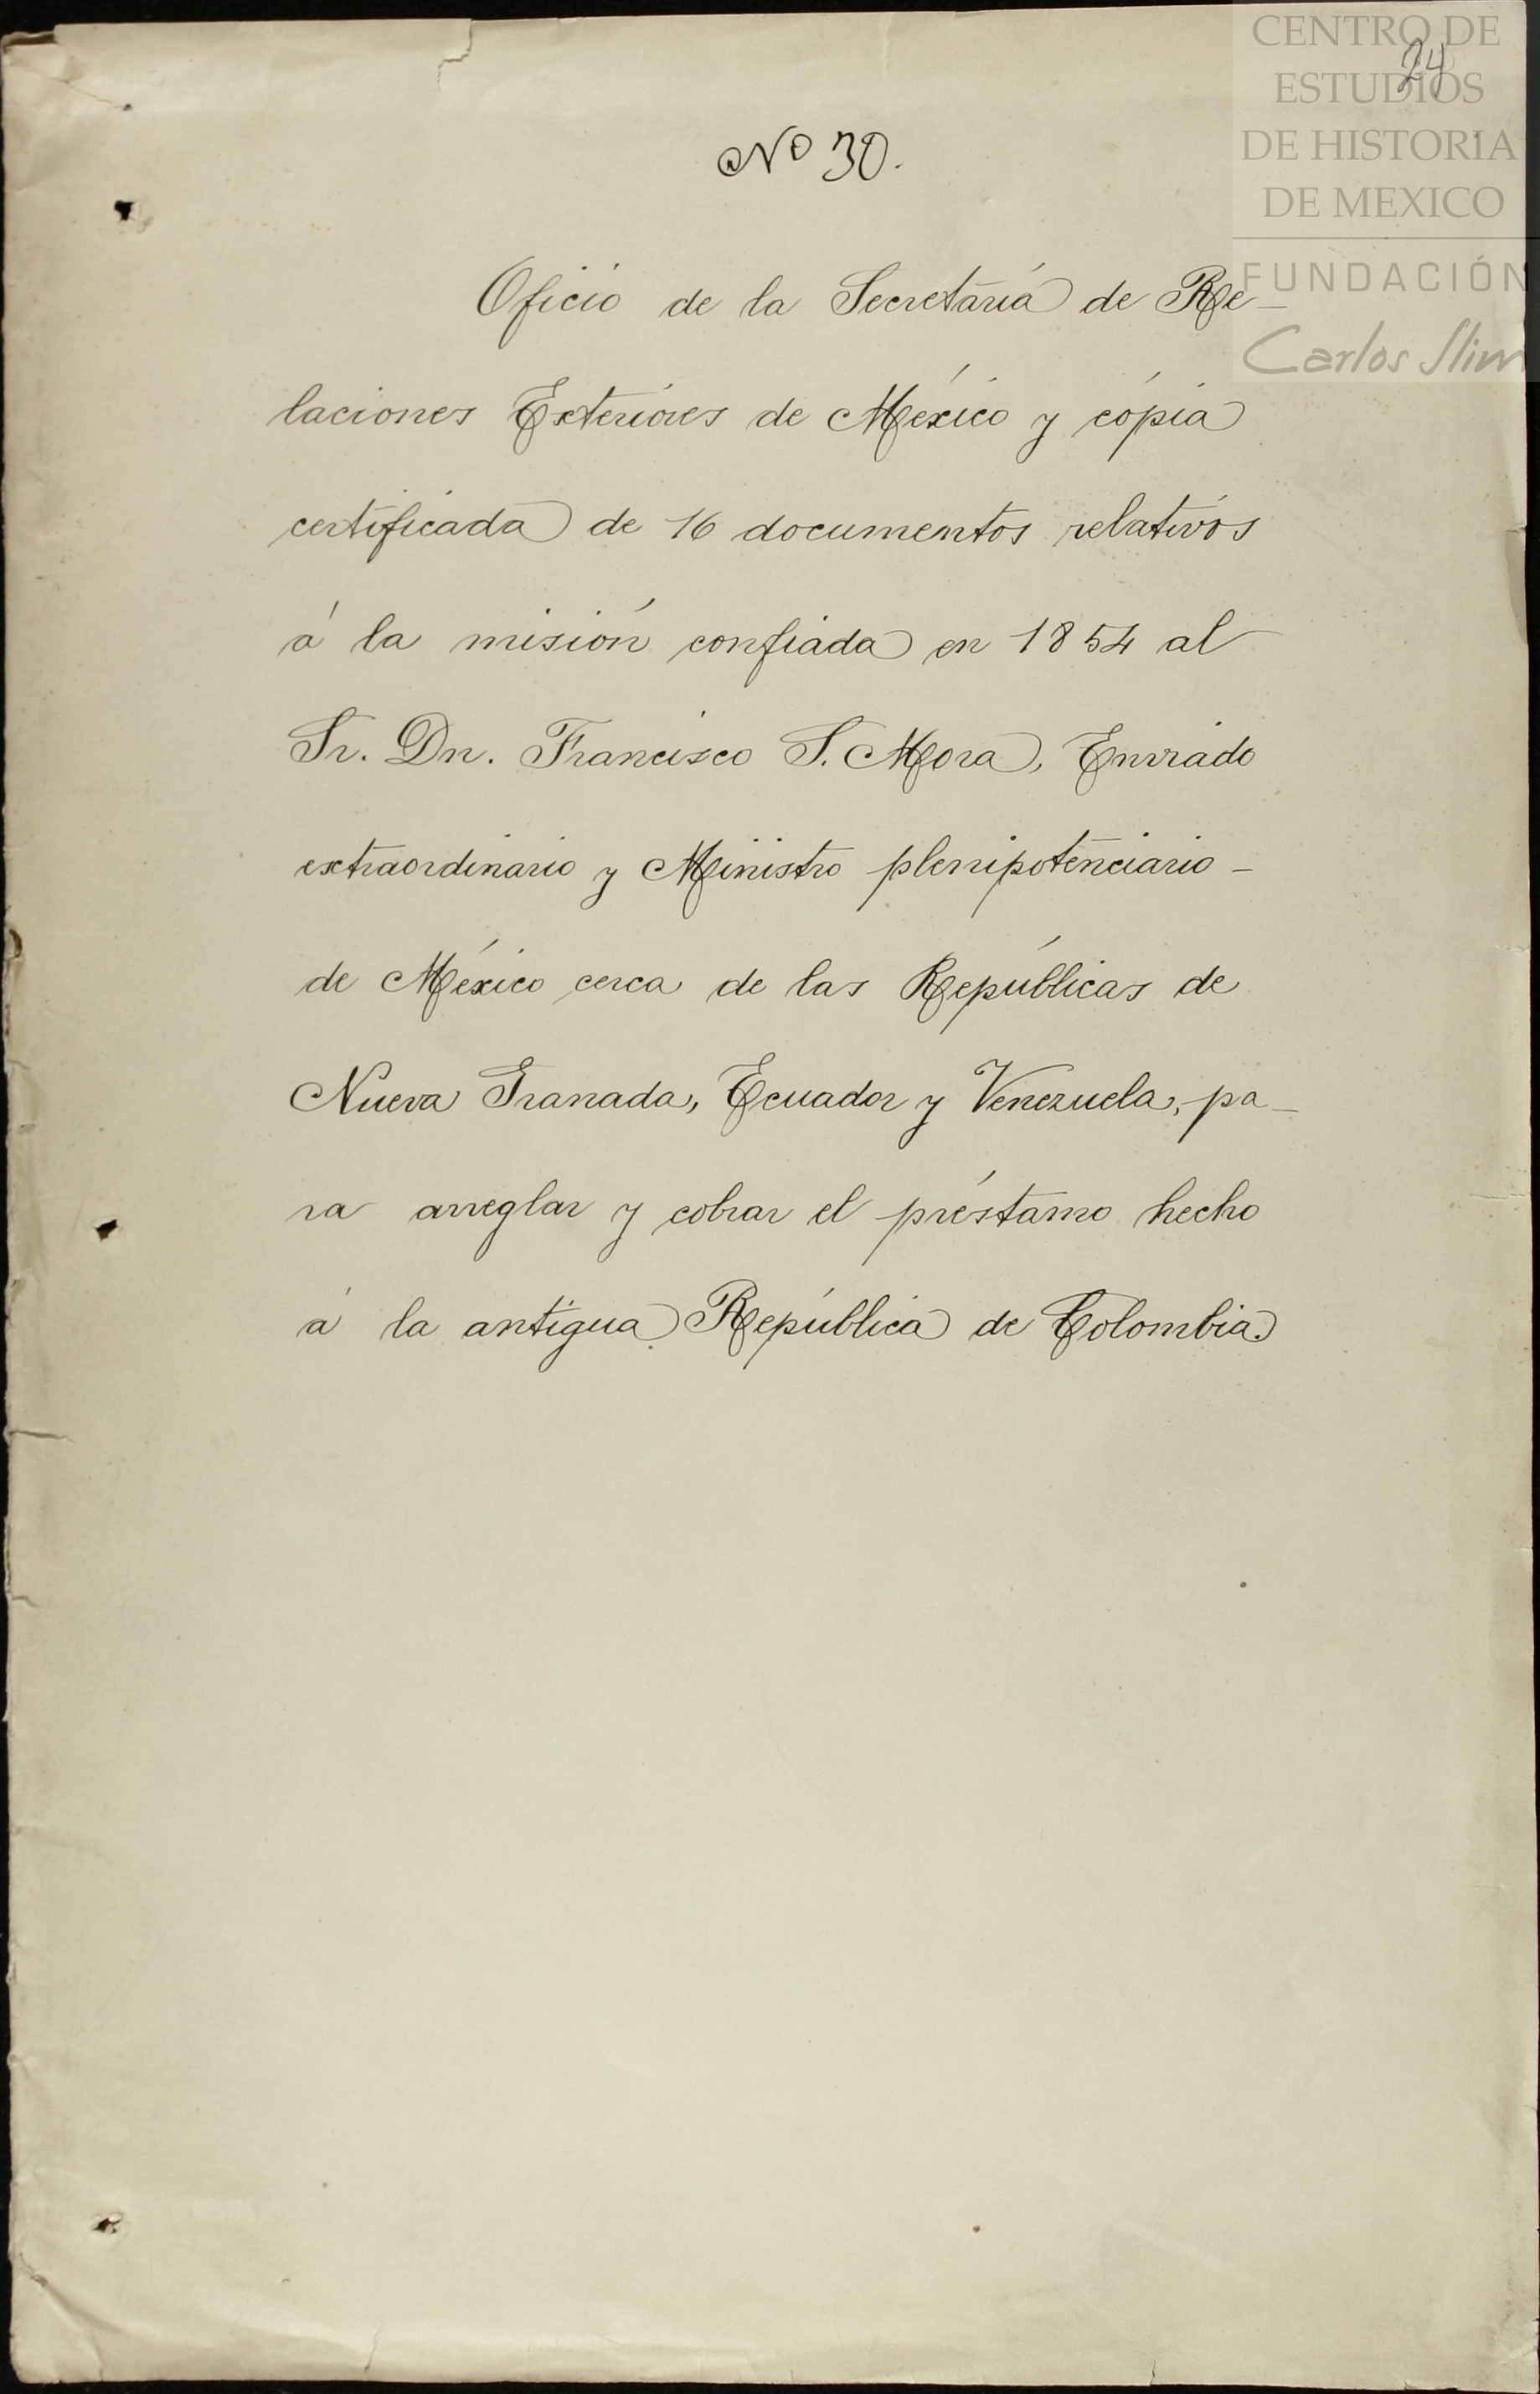 CENTRO DE
ESTUDIOS
DE HISTORIA
DE MEXICO
FUNDACIÓN
Carlos Slim
24
Nº 30.
Oficio de la Secretaría de Re-
laciones Exteriores de México y cópia
certificada de 16 documentos relativos
á la misión confiada en 1854 al
Sr. Dn. Francisco S. Mora, Enviado
extraordinario y Ministro plenipotenciario -
de México cerca de las Repúblicas de
Nueva Granada, Ecuador y Venezuela, pa-
ra arreglar y cobrar el préstamo hecho
á la antigua República de Colombia.